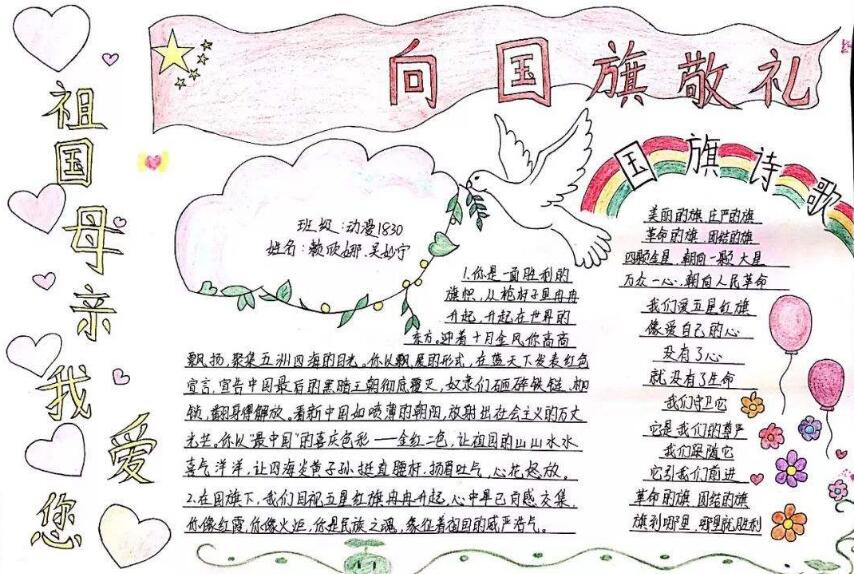 向国旗敬礼
祖国母亲我爱您
班级:动漫1830
姓名:赖欣娜 吴妙宁
1.你是一面胜利的
旗帜,从枪杆子里冉冉
升起,升起在世界的
东方。迎着十月金风你高高
飘扬,聚集五洲四海的目光。你以飘展的形式,在蓝天下发表红色
宣言,宣告中国最后的黑暗王朝彻底覆灭,奴隶们砸碎铁链、枷
锁,翻身得解放。看新中国如喷薄的朝阳,放射出社会主义的万丈
光芒。你从"最中国"的喜庆色彩——金红二色,让祖国的山山水水
喜气洋洋,让四海炎黄子孙挺直腰杆,扬眉吐气,心花怒放。
2.在国旗下,我们目视五星红旗冉冉升起,心中早已百感交集,
你像红霞,你像火炬,你是民族之魂,象征着祖国的威严浩气。
国旗诗歌
美丽的旗,庄严的旗
革命的旗,团结的旗
四颗金星,朝向一颗大星
万众一心,朝向人民革命
我们爱五星红旗
像爱自己的心
没有了心
就没有了生命
我们守卫它
它是我们的尊严
我们跟随它
它引我们前进
革命的旗 团结的旗
旗到哪里,哪里就胜利